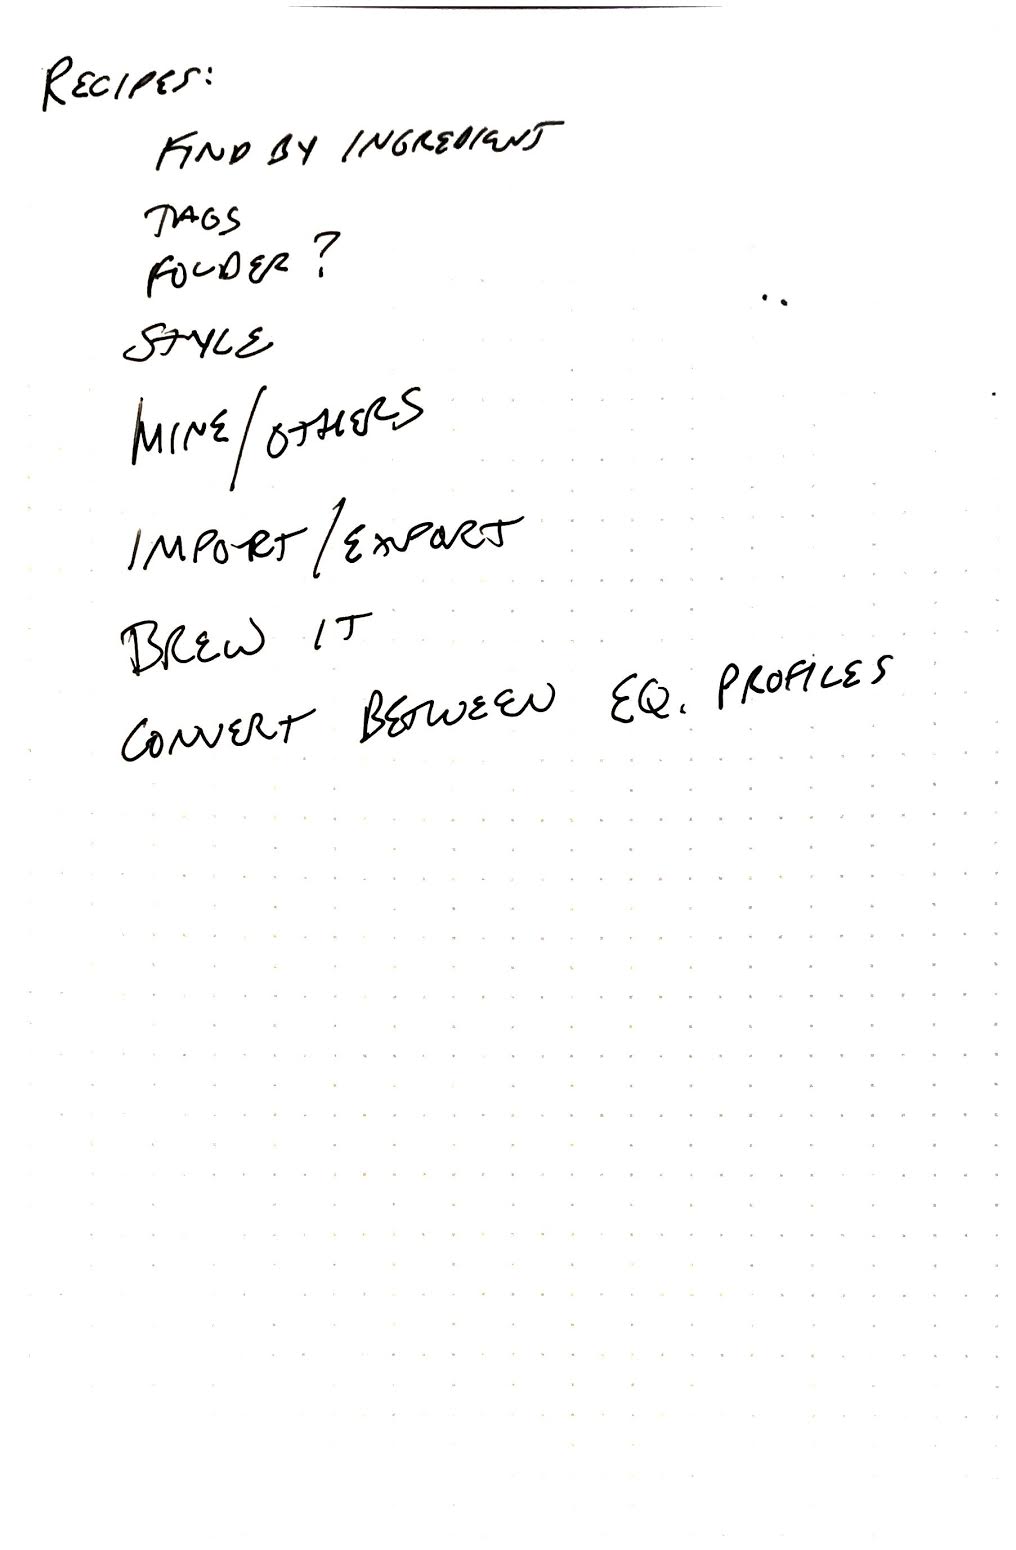 RECIPES:
FIND BY INGREDIENT
TAGS
FOLDER?
STYLE
MINE/OTHERS
IMPORT/EXPORT
BREW IT
CONVERT BETWEEN EQ. PROFILES